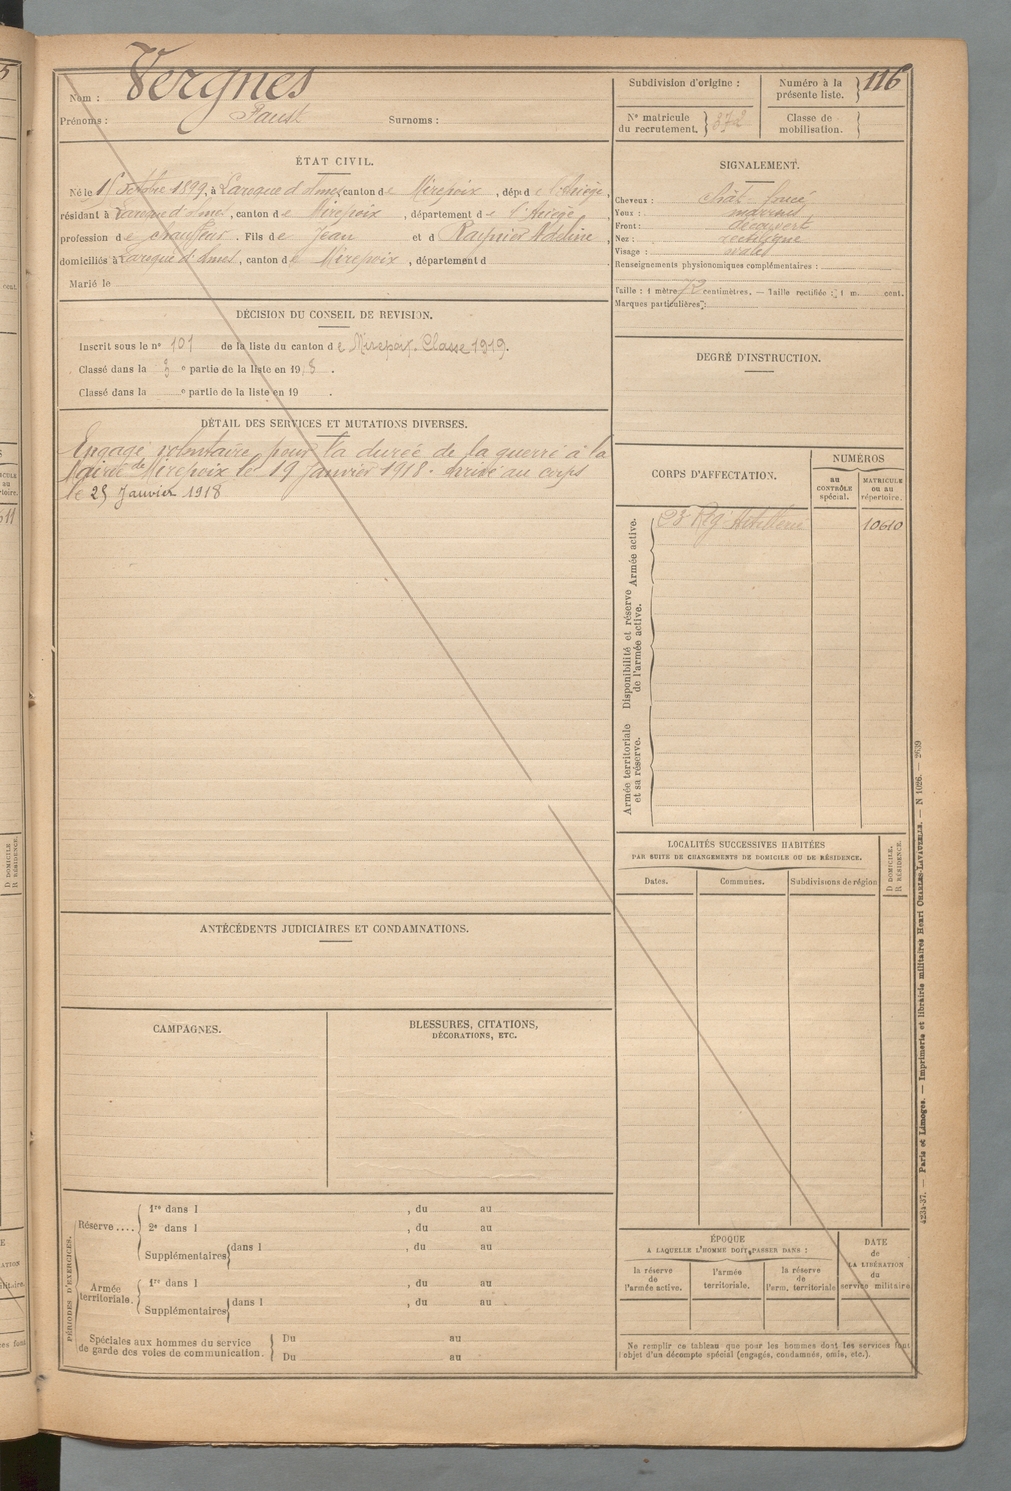 Nom : Vergnes
Prénoms : Faust Surnoms :
Subdivision d'origine :
Numéro à la présente liste. 116
N° matricule du recrutement. 372
Classe de mobilisation.
ÉTAT CIVIL.
Né le 15 1899, à Laroque d'Olmes canton de Mirepoix, dépt de l'Ariège,
résidant à Laroque d'Olmes, canton de Mirepoix, département de l'Ariège,
profession de chauffeur. Fils de Jean et d Adeline,
domiciliés à Laroque d'Olmes, canton de Mirepoix, département d
Marié le
SIGNALEMENT.
Cheveux : chât. foncé
Yeux : marrons
Front : découvert
Nez : rectiligne
Visage : ovale
Renseignements physionomiques complémentaires :
Taille : 1 mètre 72 centimètres. — Taille rectifiée : 1 m. cent.
Marques particulières :
DÉCISION DU CONSEIL DE REVISION.
Inscrit sous le n° 101 de la liste du canton de Mirepoix. Classe 1919.
Classé dans la e partie de la liste en 1918.
Classé dans la e partie de la liste en 19 .
DEGRÉ D'INSTRUCTION.
DÉTAIL DES SERVICES ET MUTATIONS DIVERSES.
Engagé volontaire pour la durée de la guerre à la
Mairie de Mirepoix le 19 Janvier 1918. arrivé au corps
le 25 Janvier 1918
CORPS D'AFFECTATION.
NUMÉROS
au CONTRÔLE spécial.
MATRICULE ou au répertoire.
Armée active.
23 Rég Artillerie 10610
Disponibilité et réserve de l'armée active.
Armée territoriale et sa réserve.
LOCALITÉS SUCCESSIVES HABITÉES
PAR SUITE DE CHANGEMENTS DE DOMICILE OU DE RÉSIDENCE.
Dates. Communes. Subdivisions de région
D DOMICILE.
R RÉSIDENCE.
ANTÉCÉDENTS JUDICIAIRES ET CONDAMNATIONS.
CAMPAGNES.
BLESSURES, CITATIONS,
DÉCORATIONS, ETC.
PÉRIODES D'EXERCICES.
Réserve ....
1re dans l , du au
2e dans l , du au
Supplémentaires dans l , du au
Armée territoriale.
1re dans l , du au
Supplémentaires dans l , du au .
Spéciales aux hommes du service
de garde des voies de communication.
Du au
Du au
ÉPOQUE
A LAQUELLE L'HOMME DOIT PASSER DANS :
la réserve de l'armée active.
l'armée territoriale.
la réserve de l'arm. territoriale
DATE de LA LIBÉRATION du service militaire
Ne remplir ce tableau que pour les hommes dont les services font
l'objet d'un décompte spécial (engagés, condamnés, omis, etc.).
4234-37. — Paris et Limoges. — Imprimerie et librairie militaires Henri CHARLES-LAVAUZELLE. — N 1026. — 2639